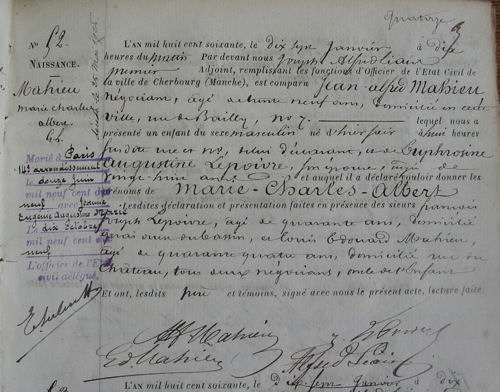 Quatorze
N° 52
NAISSANCE.
Mahieu
marie charles
albert
L'AN mil huit cent soixante, le dix sept Janvier à dix
heures du matin Par devant nous Joseph Alfred Liais
premier Adjoint, remplissant les fonctions d'Officier de l'Etat Civil de
la ville de Cherbourg (Manche), est comparu Jean-alfred Mahieu
négociant, âgé de trente neuf ans, domicilié en cette
ville, rue de Bailly, no 7. lequel nous a
présenté un enfant du sexe masculin né d'hier soir à huit heures
fils de lui déclarant, et de Euphrosine
Augustine Lepoivre, son épouse, âgée de
vingt-huit ans et auquel il a déclaré vouloir donner les
prénoms de Marie-Charles-Albert
Lesdites déclaration et présentation faites en présence des sieurs françois
Joseph Lepoivre, âgé de quarante ans, domicilié
quai du bassin, et Louis Edouard Mahieu,
âgé de quarante quatre ans, domicilié rue du
Château, tous deux négociants, oncles de l'Enfant
Et ont, lesdits père et témoins, signé avec nous le présent acte, lecture faite.
Marié à Paris
14e arrondissement
le douze Juin
mil neuf cent
neuf avec Jeanne
Eugénie Augustine Marie
Le dix Octobre
mil neuf cent
neuf
L'officier de l'Etat
civil délégué,
Mahieu
Ed. Mahieu
Alfred Liais
L'AN mil huit cent soixante, le dix sept Janvier à dix